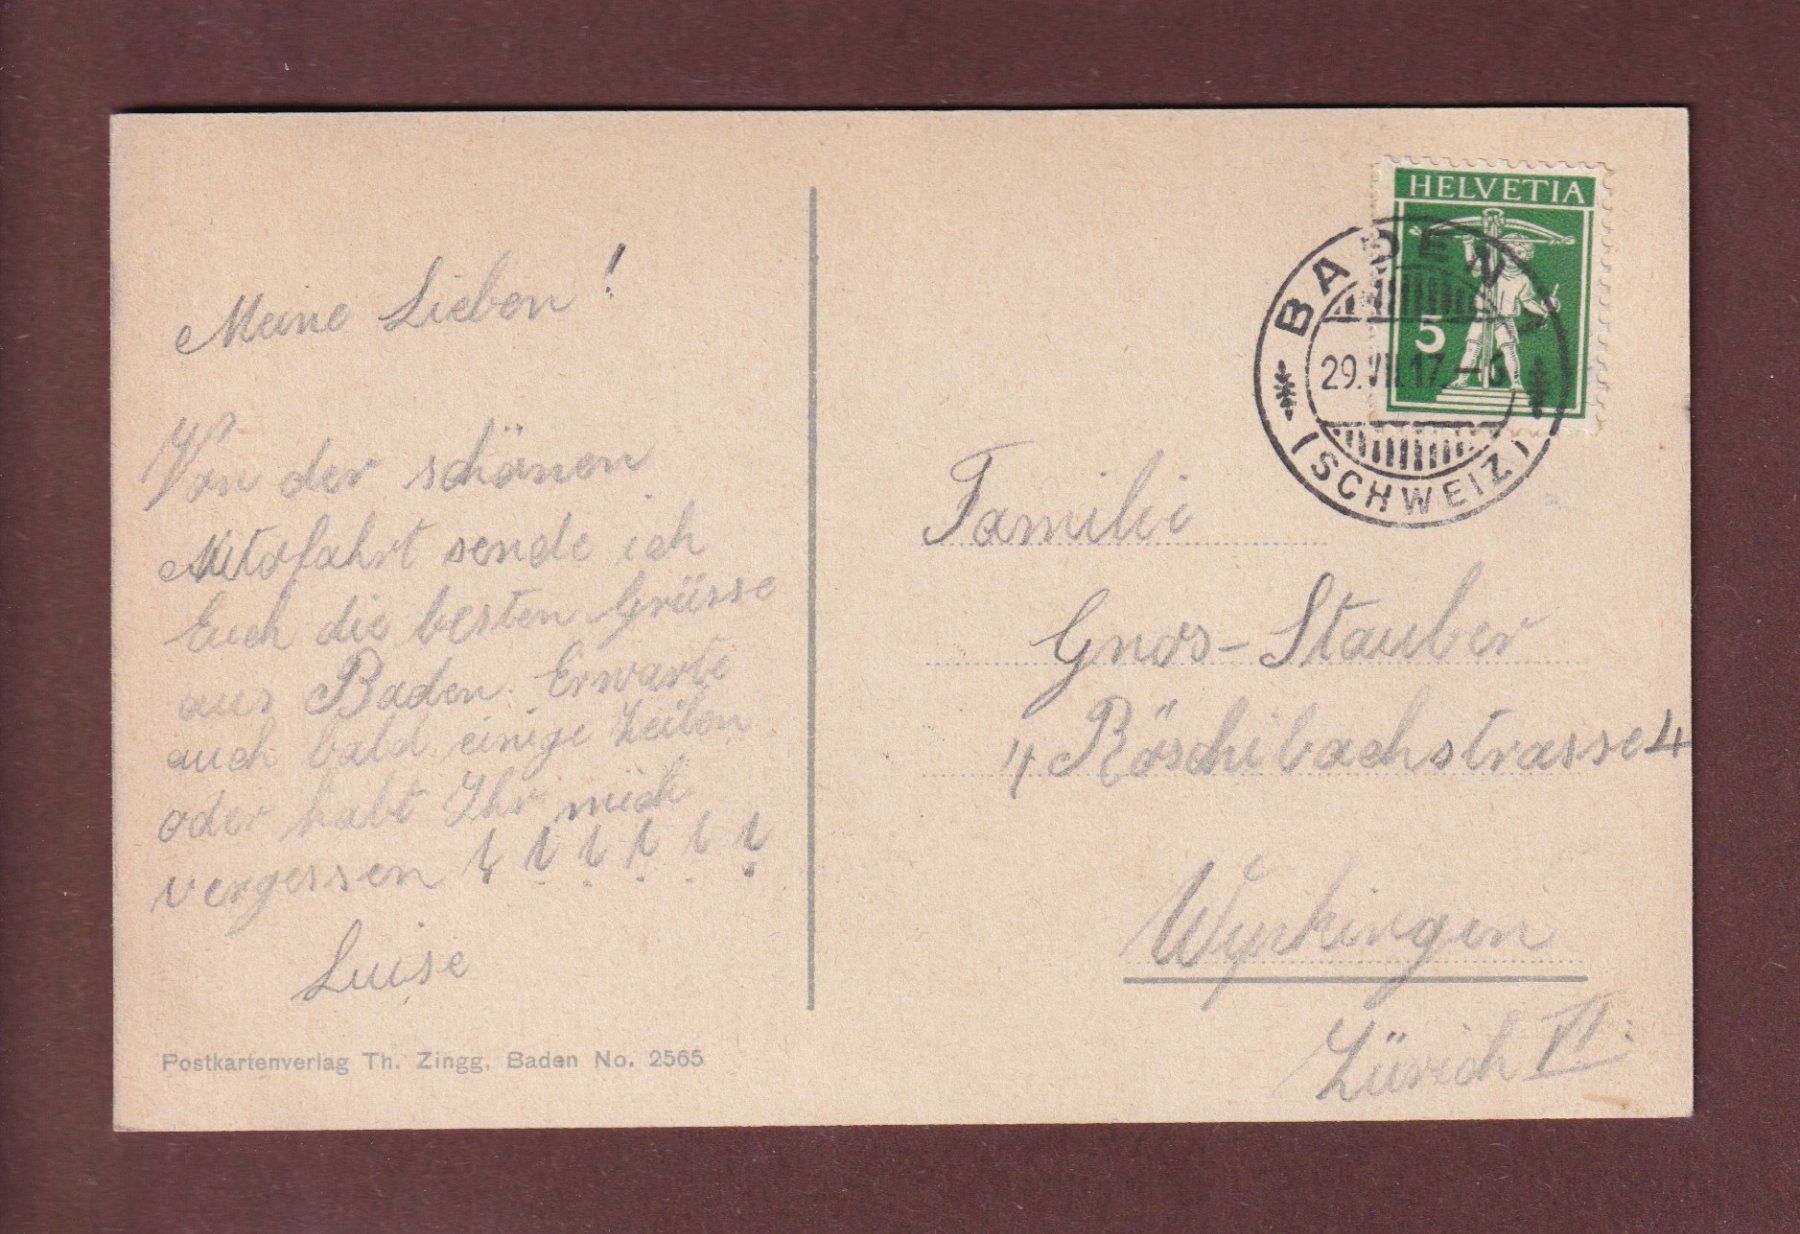 Meine Lieben!
Von der schönen
Autofahrt sende ich
Euch die besten Grüsse
aus Baden. Erwarte
auch bald einige Zeilen
oder habt Ihr mich
vergessen ? ? ? ? ? ?
Luise
Postkartenverlag Th. Zingg, Baden No. 2565
HELVETIA
5
BADEN
29.VII.17.
(SCHWEIZ)
Familie
Gnos-Stauber
4 Röschibachstrasse 4
Wypkingen
Zürich VI.